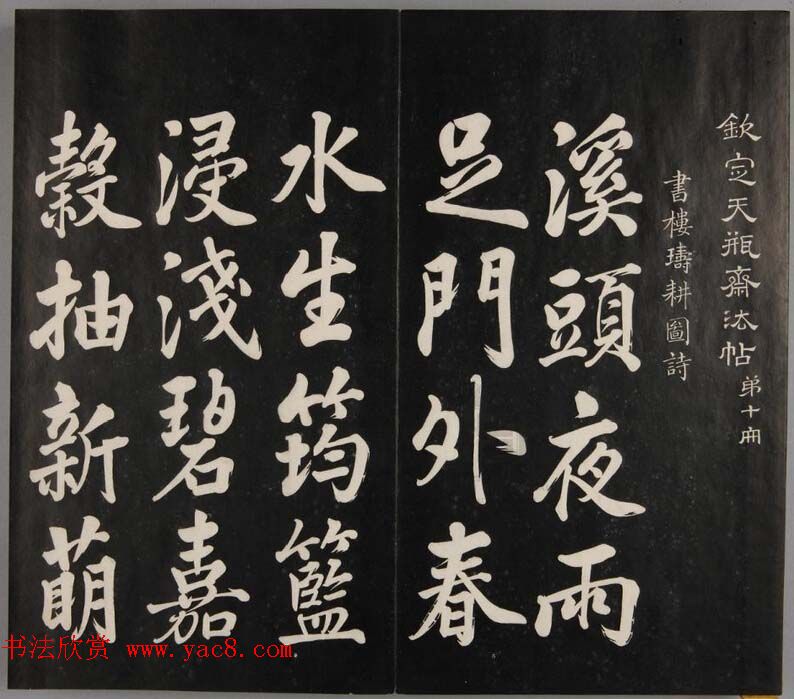 欽定天瓶齋法帖 弟十冊
書樓璹耕圖詩
溪頭夜雨
足門外春
水生筠籃
浸淺碧嘉
穀抽新萌
书法欣赏 www.yac8.com